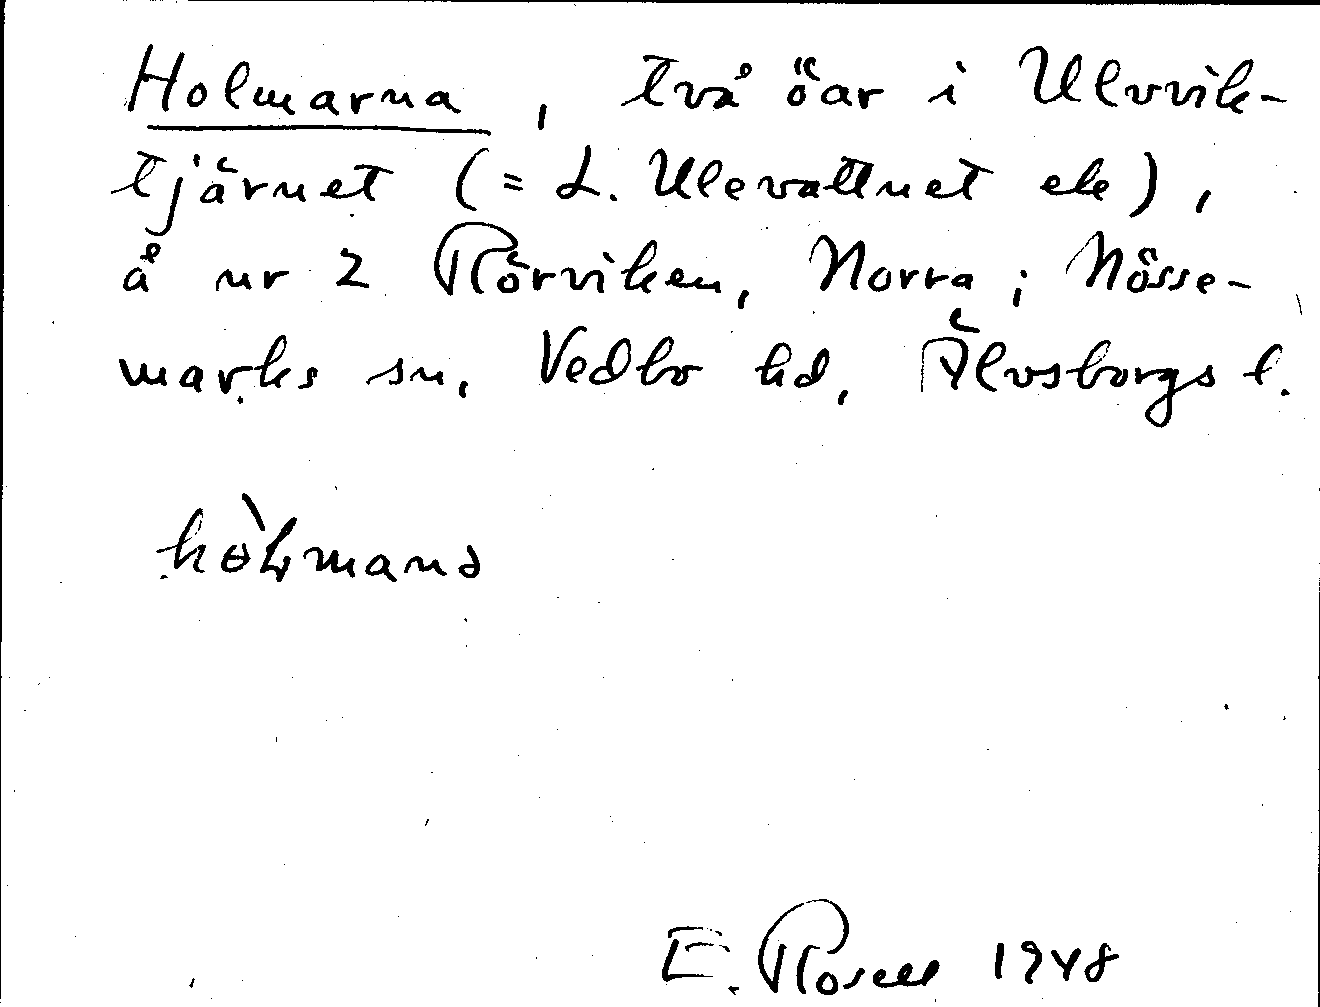 Holmarna, två öar i Ulvvik-
tjärnet (= L. Ulevattnet ek),
å ur 2 Rörviken, Norra; Nösse-
marks sn, Vedbo hd, Älvsborgs l.
E. Rosell 1948